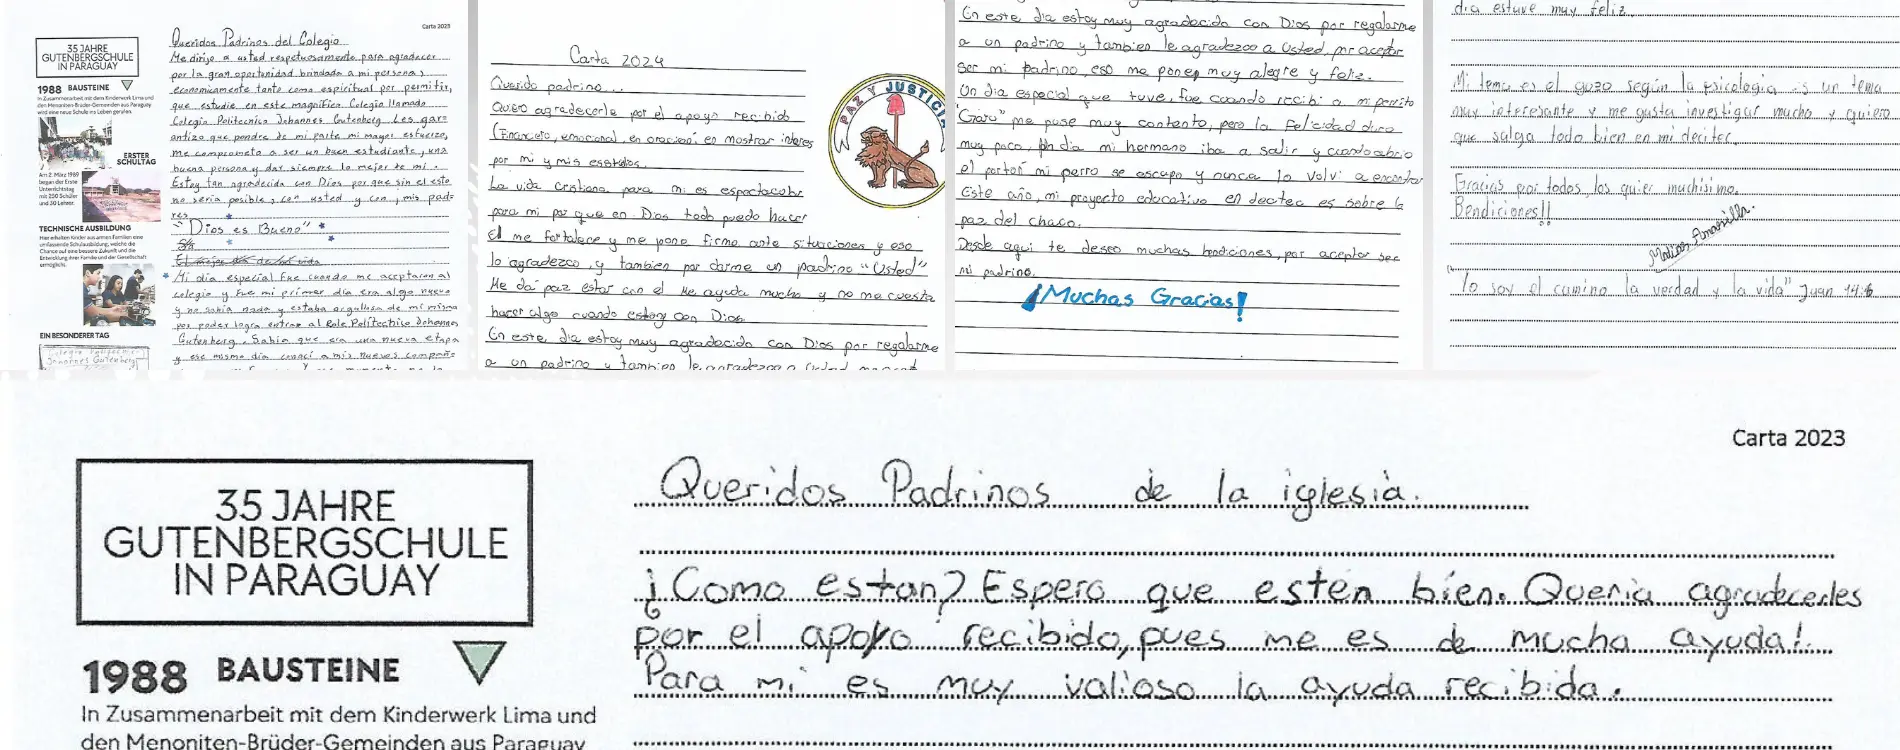 Carta 2023
35 JAHRE
GUTENBERGSCHULE
IN PARAGUAY
1988 BAUSTEINE
In Zusammenarbeit mit dem Kinderwerk Lima und
den Menoniten-Brüder-Gemeinden aus Paraguay
wird eine neue Schule ins Leben gerufen.
ERSTER
SCHULTAG
Am 2. März 1989
began der Erste
Unterrichtstag
mit 250 Schüler
und 30 Lehrer.
TECHNISCHE AUSBILDUNG
EIN BESONDERER TAG
Colegio Politecnico
Johannes Gutenberg
Queridos Padrinos del Colegio
Me dirijo a usted respetuosamente para agradecer
por la gran oportunidad brindada a mi persona,
economicamente tanto como espiritual por permitir,
que estudie en este magnifico Colegio llamado
Colegio Politecnico Johannes Gutenberg. Les gar
antizo que pondre de mi parte mi mayor esfuerzo,
me comprometo a ser un buen estudiante, una
buena persona y dar siempre lo mejor de mi.
Estoy tan agradecida con Dios por que sin el esto
no seria posible, con usted y con mis pad-
res
"Dios es Bueno"
Mi dia especial fue cuando me aceptaron al
colegio y fue mi primer día era algo nuevo
y no sabia nada y estaba orgullosa de mi misma
por poder logra entrar al Cole. Politectico Johannes
Gutenberg. Sabia que era una nueva etapa
y ese mismo dia conoci a mis nuevos compañe
Carta 2024
Querido padrino...
Quiero agradecerle por el apoyo recibido
(Financiero, emocional, en oración, en mostrar interes
por mi y mis estudios.
La vida cristiana para mi es espectacular
para mi por que en Dios todo puedo hacer
El me fortalece y me pone firme ante situaciones y eso
lo agradezco, y tambien por darme un padrino "Usted"
Me da paz estar con el Me ayuda mucho y no me cuesta
hacer algo cuando estoy con Dios.
En este dia estoy muy agradecido con Dios por regalarme
a un padrino y tambien le agradezco a Usted
PAZ Y JUSTICIA
En este dia estoy muy agradecido con Dios por regalarme
a un padrino y tambien le agradezco a Usted, por aceptar
ser mi padrino, eso me ponen muy alegre y feliz.
Un dia especial que tuve, fue cuando recibi a mi perrito
me puse muy contento, pero la felicidad duro
muy poco, un dia mi hermano iba a salir y cuando abrio
el portón mi perro se escapo y nunca lo volvi a encontrar
Este año, mi proyecto educativo en dectec es sobre la
paz del chaco.
Desde aqui te deseo muchas bendiciones, por aceptar ser
mi padrino.
¡Muchas Gracias!
dia estuve muy feliz.
Mi tema es el gozo según la psicologia es un tema
muy interesante y me gusta investigar mucho y quiero
que salga todo bien en mi decitec.
Gracias por todos, los quier muchisimo.
Bendiciones!!
"Yo soy el camino la verdad y la vida" Juan 14:6
Carta 2023
35 JAHRE
GUTENBERGSCHULE
IN PARAGUAY
1988 BAUSTEINE
In Zusammenarbeit mit dem Kinderwerk Lima und
den Menoniten-Brüder-Gemeinden aus Paraguay
Queridos Padrinos de la iglesia.
¿Como estan? Espero que estén bien. Queria agradecerles
por el apoyo recibido, pues me es de mucha ayuda!.
Para mi es muy valioso la ayuda recibida.